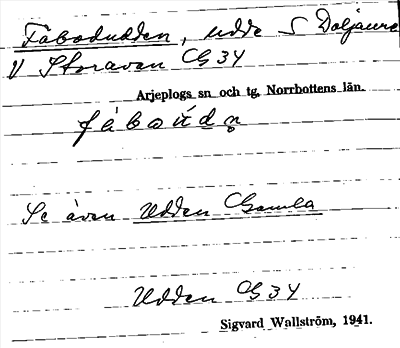 Fäbodudden, udde S Doljaure
V Storavan CG 34
Arjeplogs sn och tg, Norrbottens län.
Se även Udden Gamla
Udden CG 34
Sigvard Wallström, 1941.